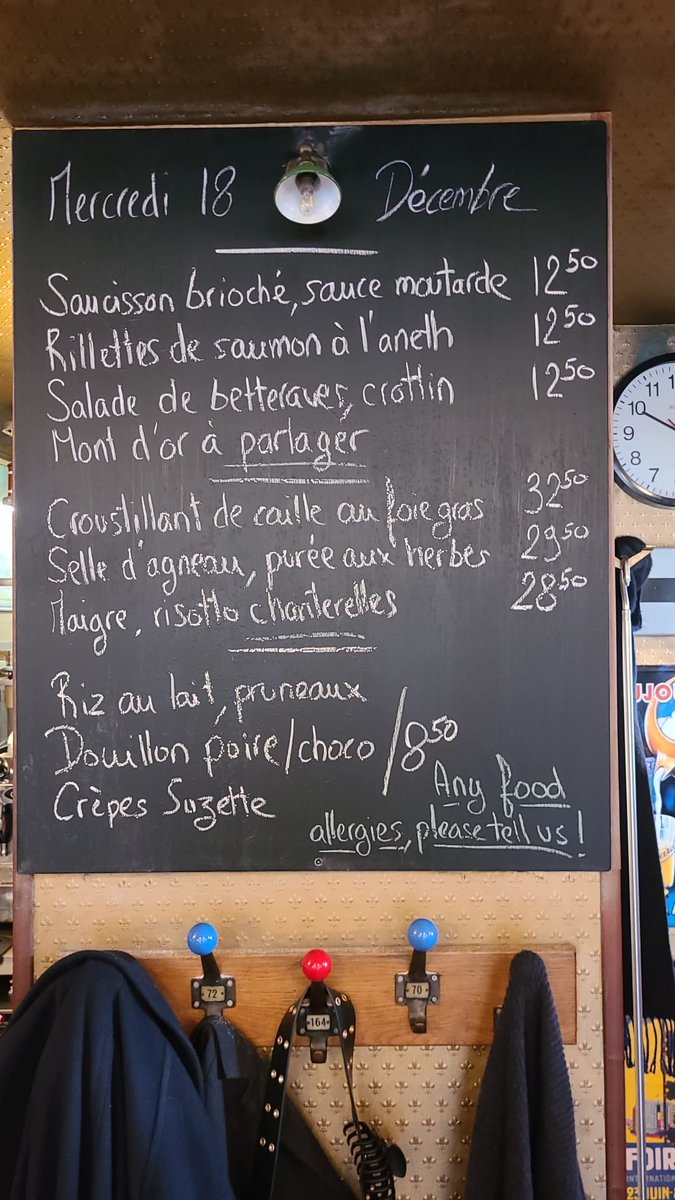 Mercredi 18 Décembre
Saucisson brioché, sauce moutarde 12⁵⁰
Rillettes de saumon à l'aneth 12⁵⁰
Salade de betteraves, crottin 12⁵⁰
Mont d'or à partager
Croustillant de caille au foie gras 32⁵⁰
Selle d'agneau, purée aux herbes 29⁵⁰
Maigre, risotto chanterelles 28⁵⁰
Riz au lait, pruneaux
Douillon poire/choco /8⁵⁰
Crèpes Suzette
Any food
allergies, please tell us!
11
10
9
8
7
72
164
70
UJO
FOIR
INTERNATION
23 JUIN-